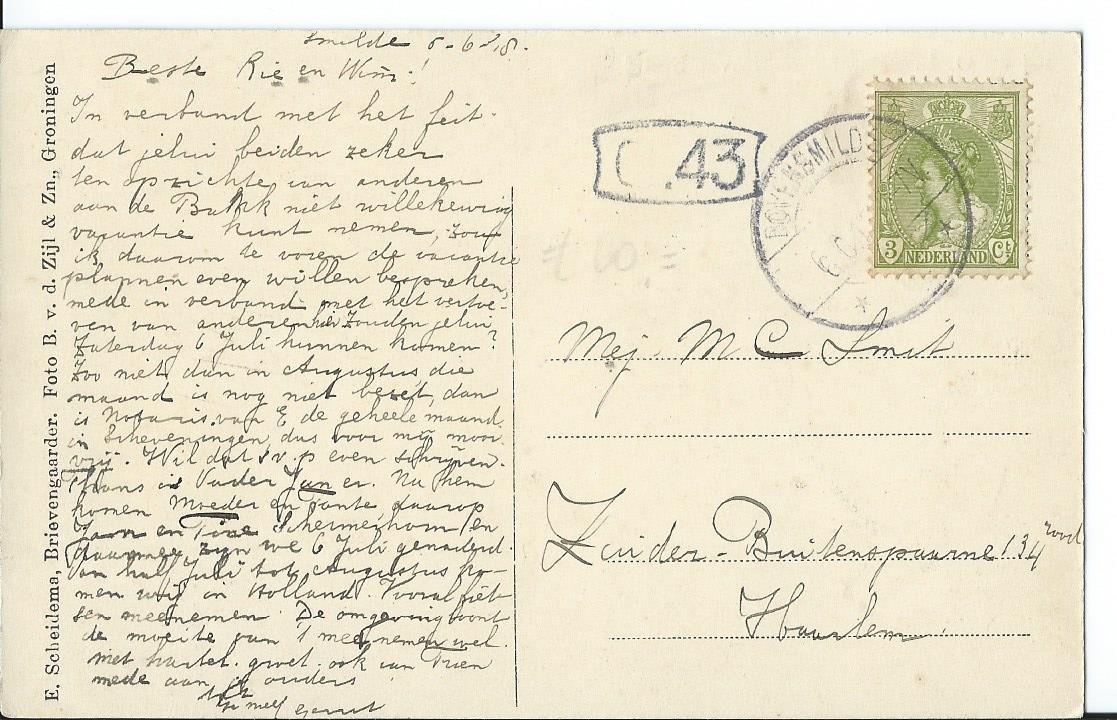 Smilde 5-6-'18.
Beste Rie en Wim!
In verband met het feit
dat jelui beiden zeker
ten opzichte van anderen
aan de Bank niet willekeurig
vacantie kunt nemen, zou
ik daarom te voren de vacantie
plannen even willen bespreken,
mede in verband met het vertoe-
ven van anderen hier. Zouden jelui
Zaterdag 6 Juli kunnen komen?
Zoo niet dan in Augustus die
maand is nog niet bezet, dan
is Notaris van E de geheele maand
in Scheveningen, dus voor mij mooi
vrij. Wil dat s.v.p even schrijven.
Thans is Vader Jan er. Na hem
komen Moeder en Tante, daarop
Jan en Tine Schermerhorn, en
daarmee zijn we 6 Juli genaderd.
Van half Juli tot Augustus ko-
men wij in Holland. Vooral fiet-
sen meenemen. De omgeving loont
de moeite van 't meenemen wel.
Met hartel. groet. ook van Trien
mede aan je ouders
Gerrit
E. Scheidema, Brievengaarder. Foto B. v. d. Zijl & Zn., Groningen
C.43
BOVENSMILDE
3 NEDERLAND Ct
Mej. M C Smit
Zuider-Buitenspaarne 134 rood
Haarlem.